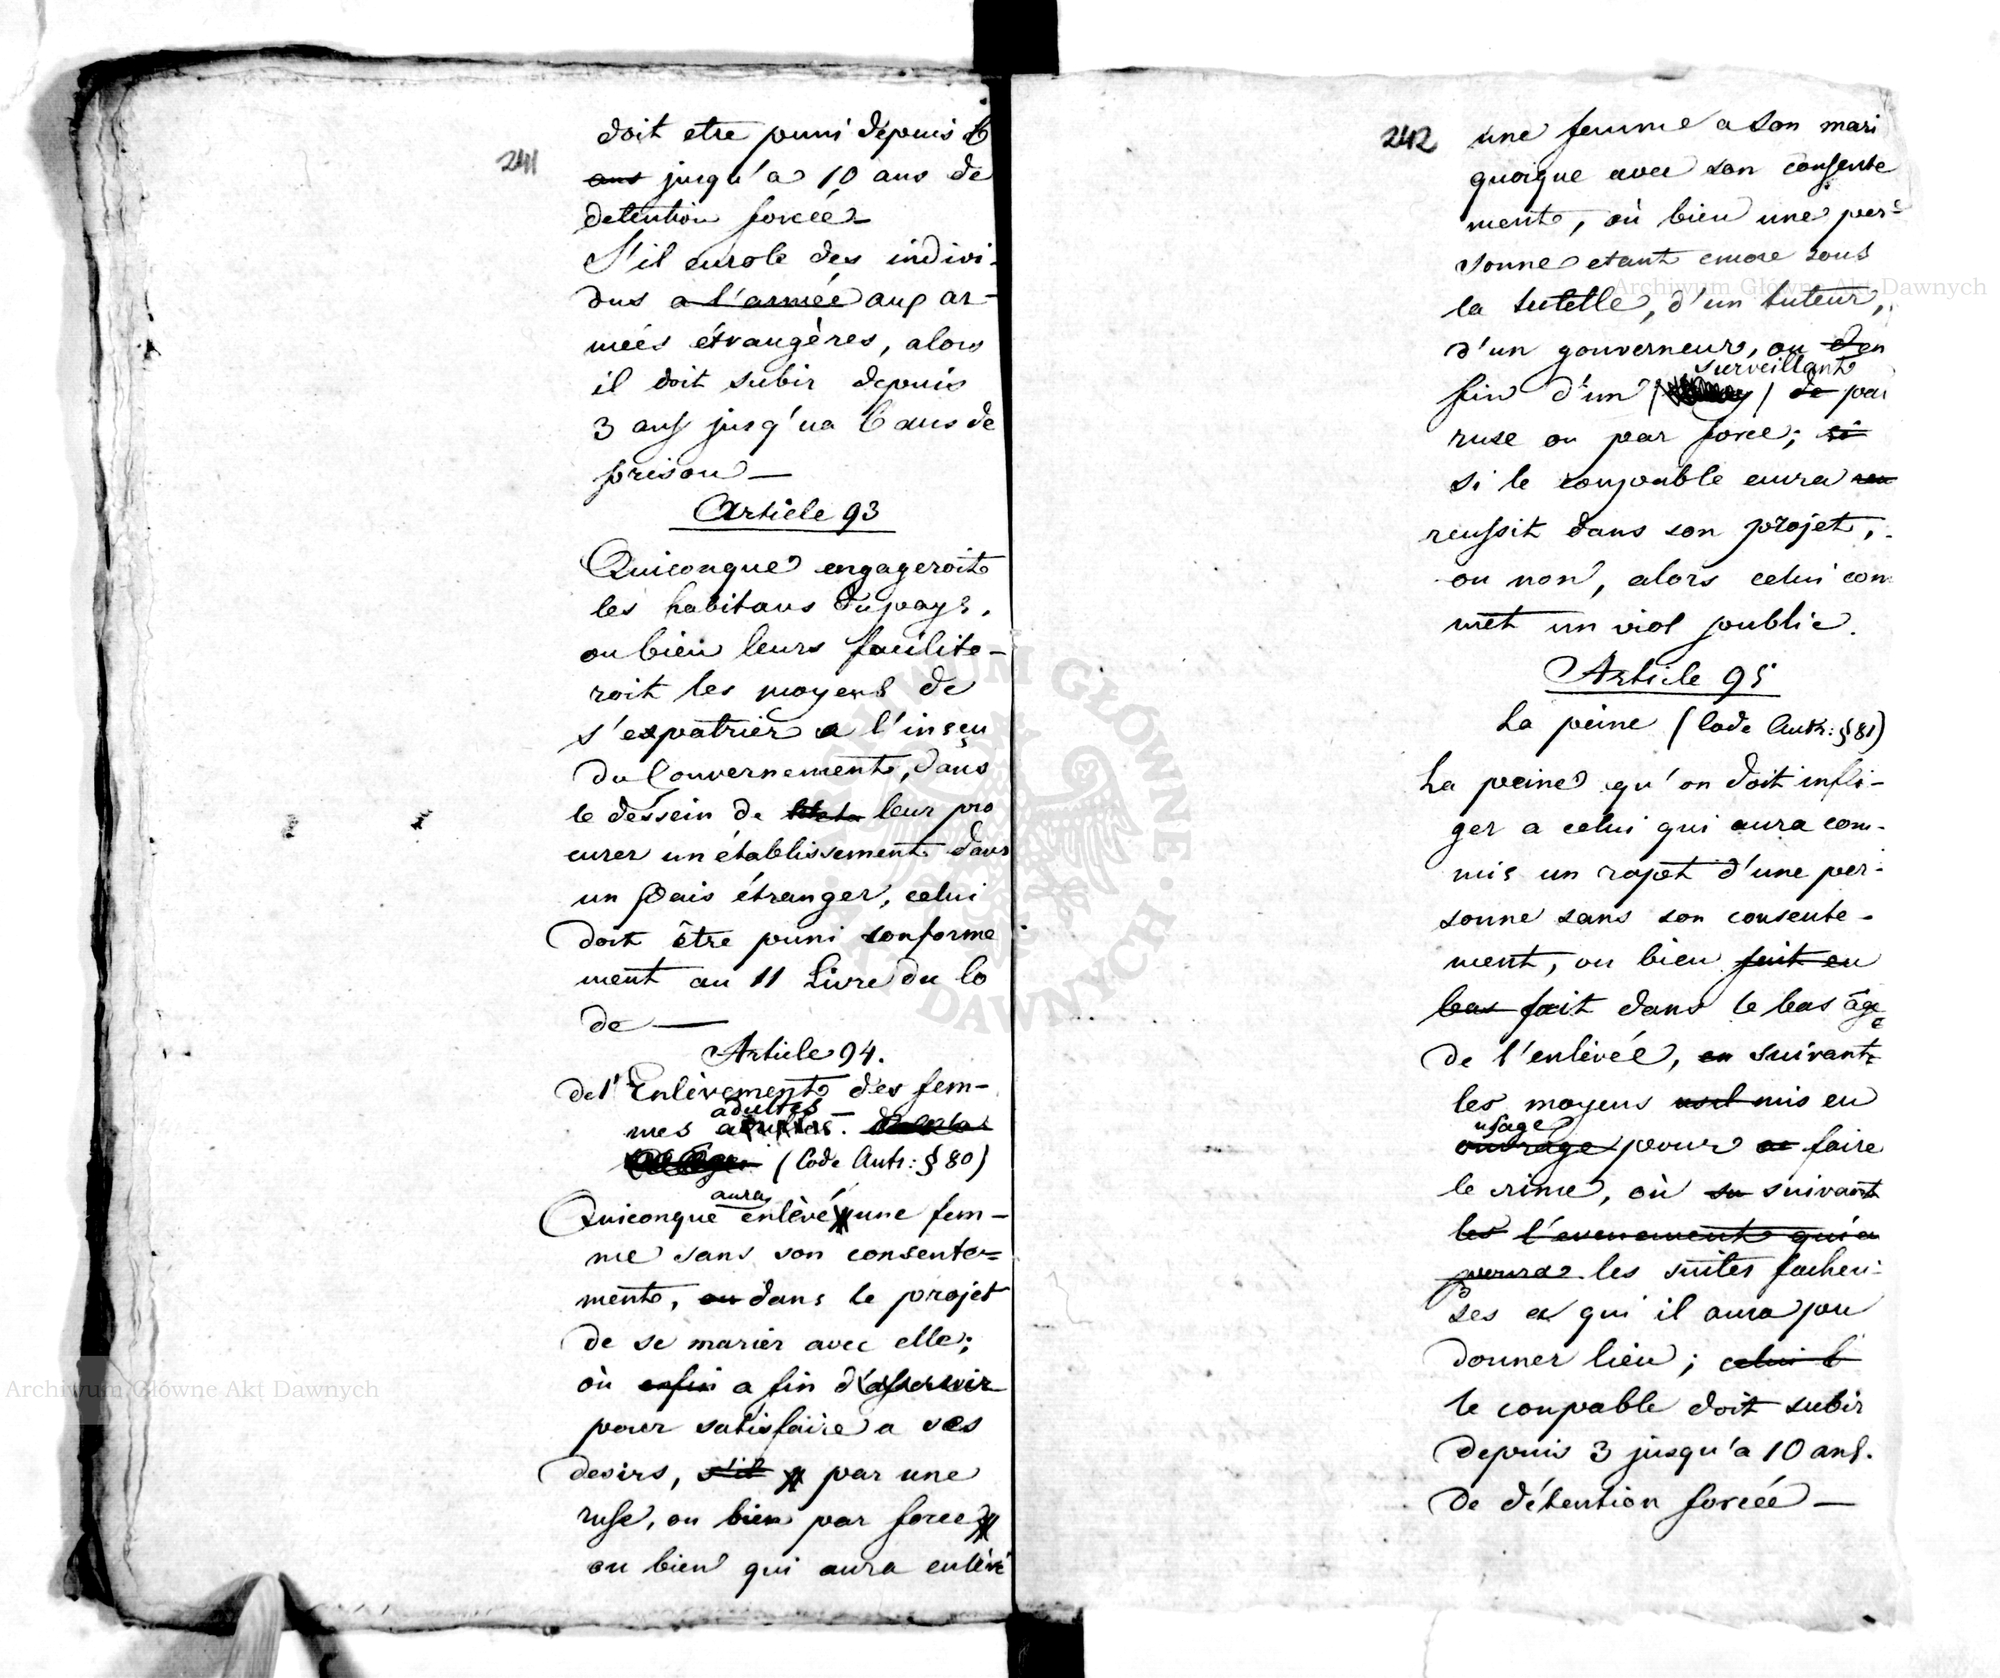 241
doit etre puni depuis 6
ans jusqu'a 10 ans de
detention forcée —
S'il enrole des indivi-
dus a l'armée aux ar-
mées étrangères, alors
il doit subir depuis
3 ans jusq'ua 6 ans de
prison —
Article 93
Quiconque engageroit
les habitans du pays,
ou bien leurs facilite-
roit les moyens de
s'expatrier a l'insçu
du Gouvernement, dans
le dessein de leur pro
curer un établissement dans
un Pais étranger, celui
doit être puni conforme
ment au 11 Livre du Co
de —
Article 94.
de l'Enlèvement des fem-
adultes
mes
(Code Autr: § 80)
aura
Quiconque enlèvé une fem-
me sans son consente=
ment, ou dans le projet
de se marier avec elle;
où enfin a fin d'asservir
pour satisfaire a ses
desirs, s'il par une
ruse, ou bien par force
ou bien qui aura enlèvé
242
une femme a son mari
quoique avec son consente
ment, où bien une per=
sonne etant encore sous
la tutelle, d'un tuteur,
d'un gouverneur, ou d'en
surveillant
fin d'un de par
ruse ou par force; si
si le coupable aura reu
reussit dans son projet,
ou non, alors celui com
met un viol public.
Article 95
La peine (Code Autr: § 81)
La peine qu'on doit infli-
ger a celui qui aura com-
mis un rapt d'une per-
sonne sans son consente-
ment, ou bien fait en
bas fait dans le bas âge
de l'enlévée, en suivant
les moyens mis en
usage
outrage pour ce faire
le crime, où su suivant
les l'evenement qui a
les suites facheu-
ses a qui il aura pu
donner lieu; celui l
le coupable doit subir
depuis 3 jusqu'a 10 ans.
de détention forcée —
Archiwum Główne Akt Dawnych
Archiwum Główne Akt Dawnych
ARCHIWUM GŁÓWNE · AKT DAWNYCH ·